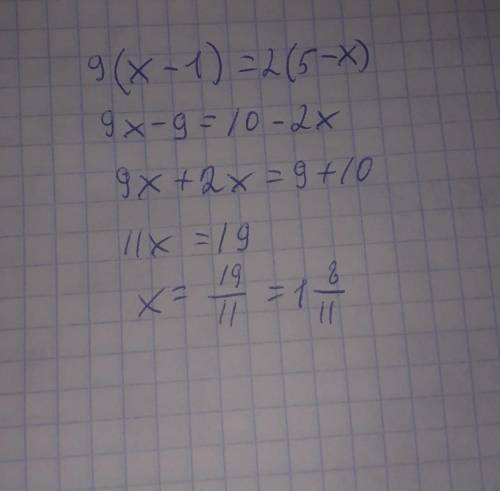 9(x-1)=2(5-x)
9x-9=10-2x
9x+2x=9+10
11x=19
x=19/11=1 8/11